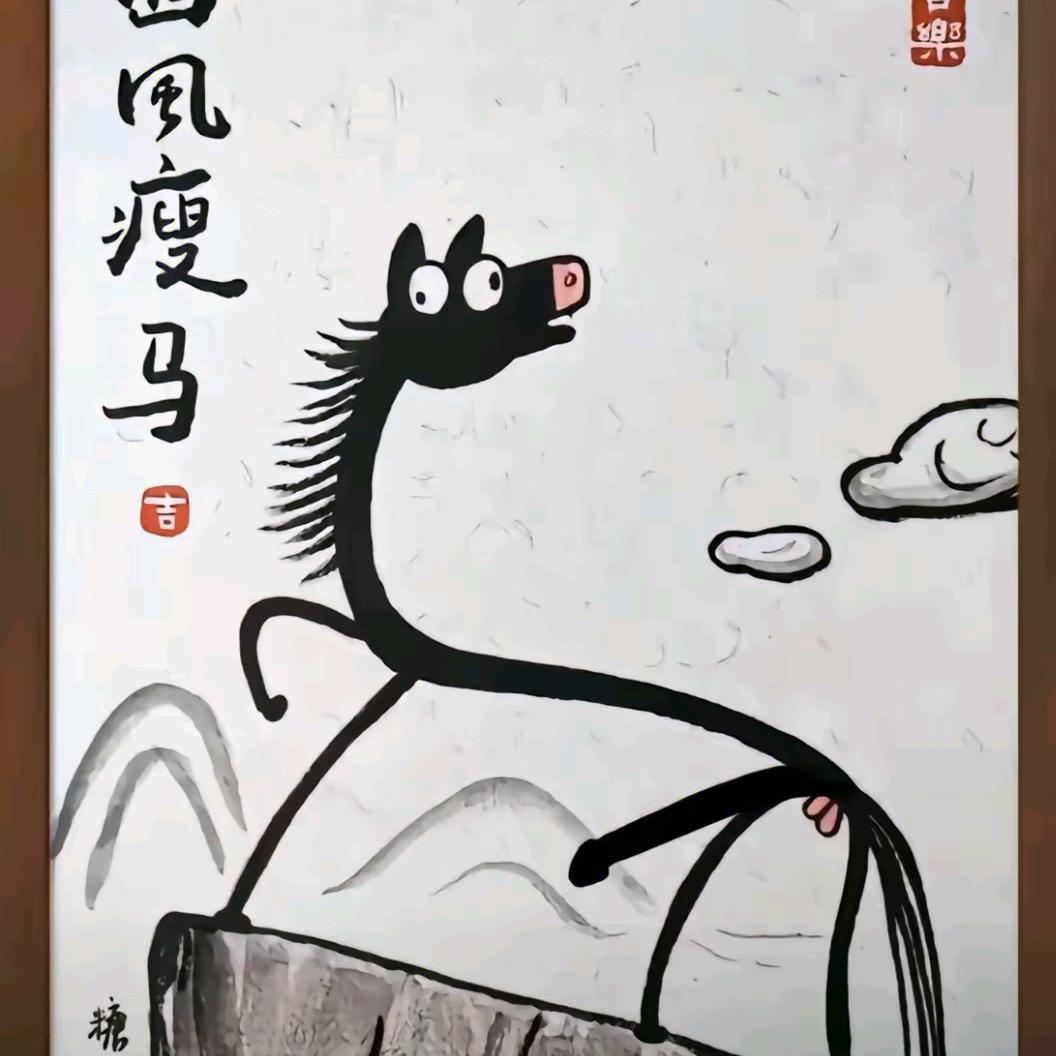 西風瘦马
吉
樂
糖